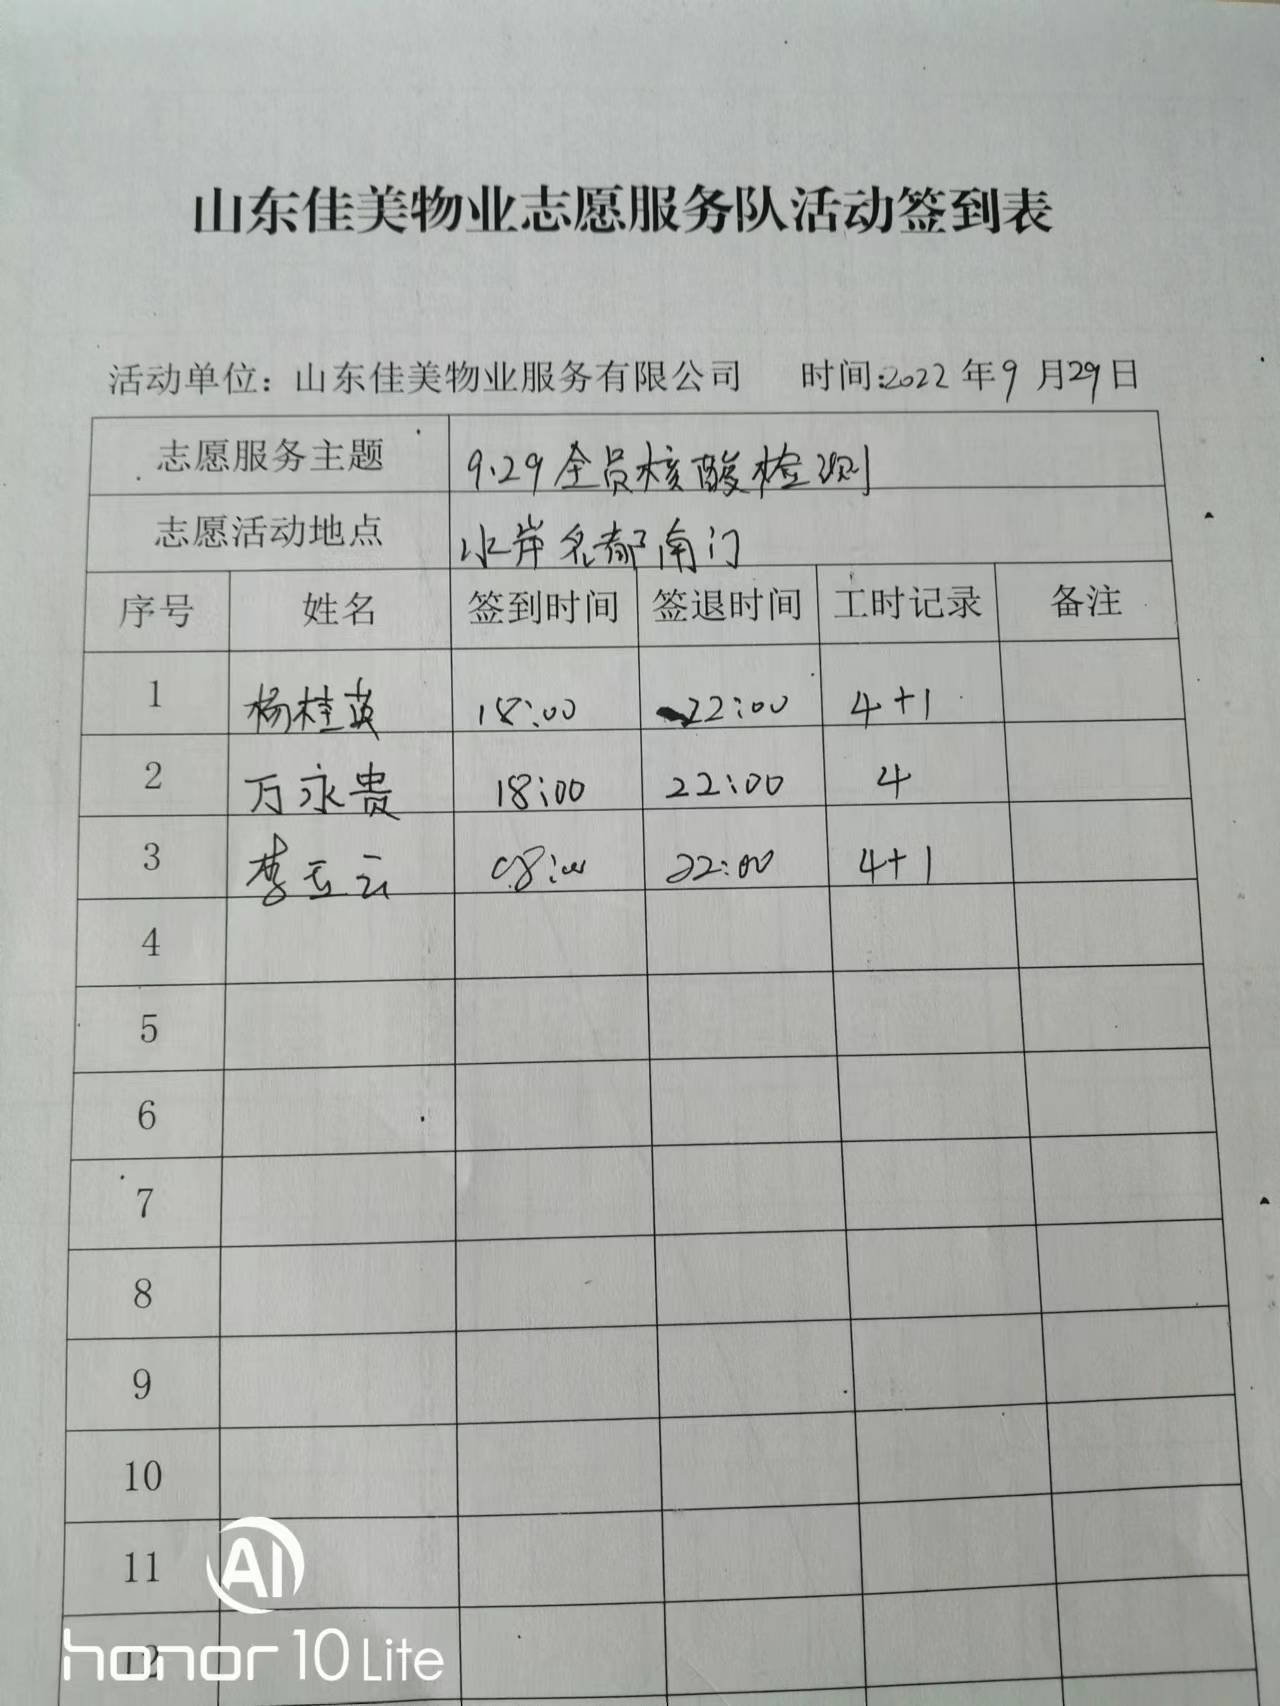 山东佳美物业志愿服务队活动签到表
活动单位：山东佳美物业服务有限公司 时间:2022年9月29日
志愿服务主题 9.29全员核酸检测
志愿活动地点 水岸名都南门
序号 姓名 签到时间 签退时间 工时记录 备注
1 杨桂英 18:00 22:00 4+1
2 万永贵 18:00 22:00 4
3 李玉云 22:00 4+1
4
5
6
7
8
9
10
11
12
AI
honor 10 Lite